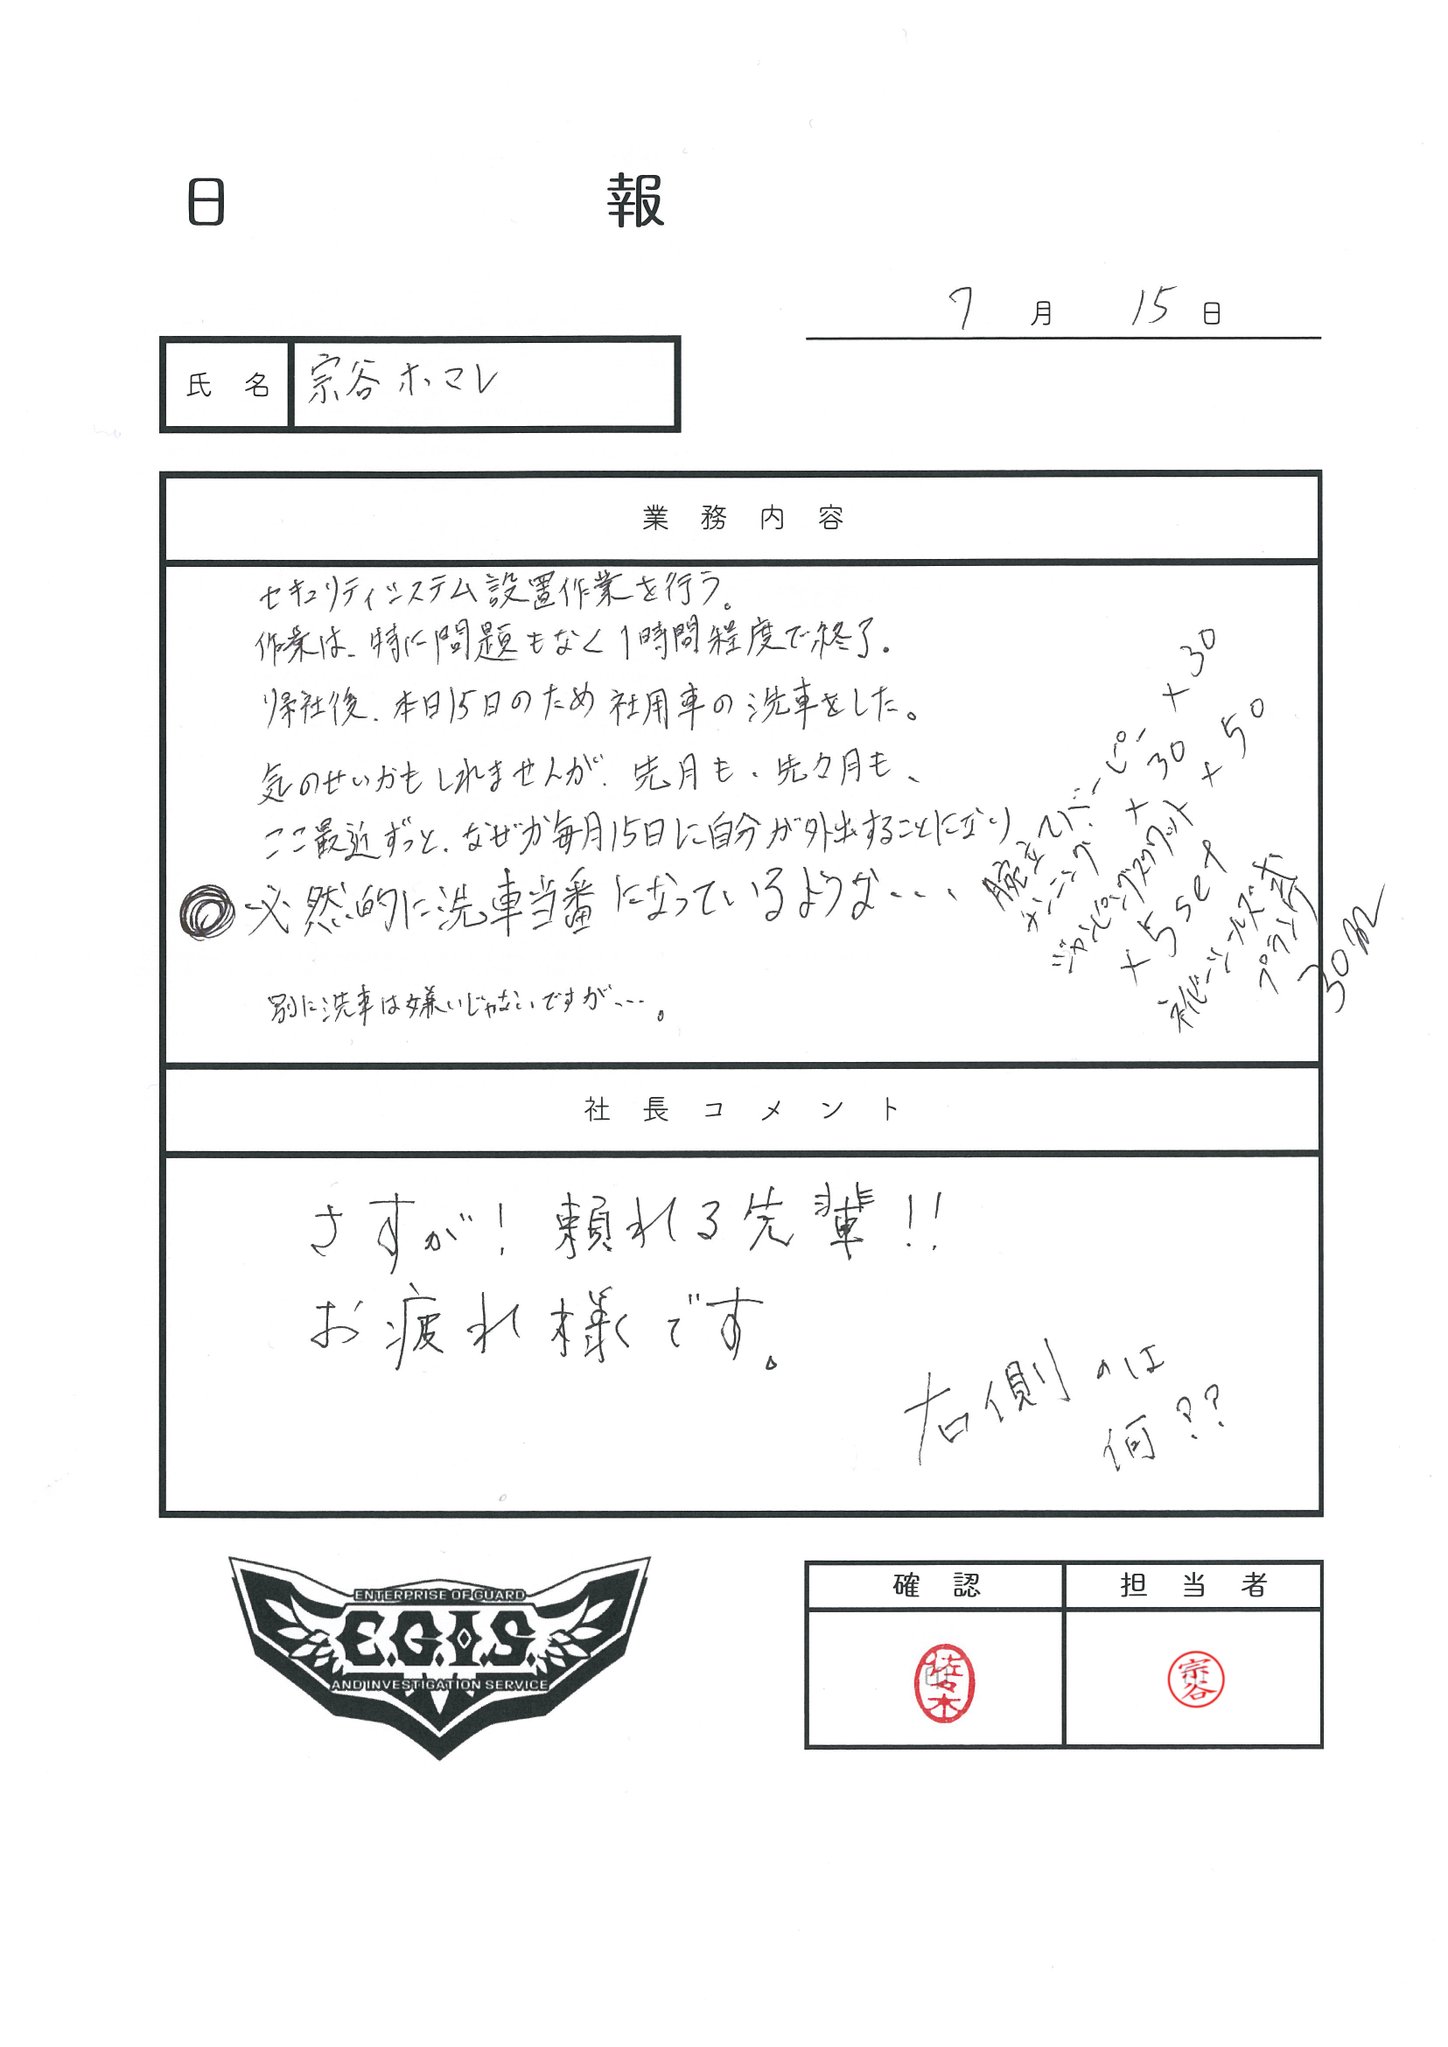 日 報
7 月 15 日
氏 名 宗谷ホマレ
業 務 内 容
セキュリティシステム設置作業を行う。
作業は、特に問題もなく1時間程度で終了。
帰社後、本日15日のため社用車の洗車をした。
気のせいかもしれませんが、先月も、先々月も、
ここ最近ずっと、なぜか毎月15日に自分が外出することになり
必然的に洗車当番になっているような...
別に洗車は嫌いじゃないですが...。
腕立てバーピー ×30
ランニング ×30
ジャンピングスクワット ×50
×5set
ネイビーシールズ式
プランク
30分
社 長 コ メ ン ト
さすが!頼れる先輩!!
お疲れ様です。
右側のは
何??
ENTERPRISE OF GUARD
E.G.I.S.
AND INVESTIGATION SERVICE
確 認 担 当 者
佐々木
宗谷